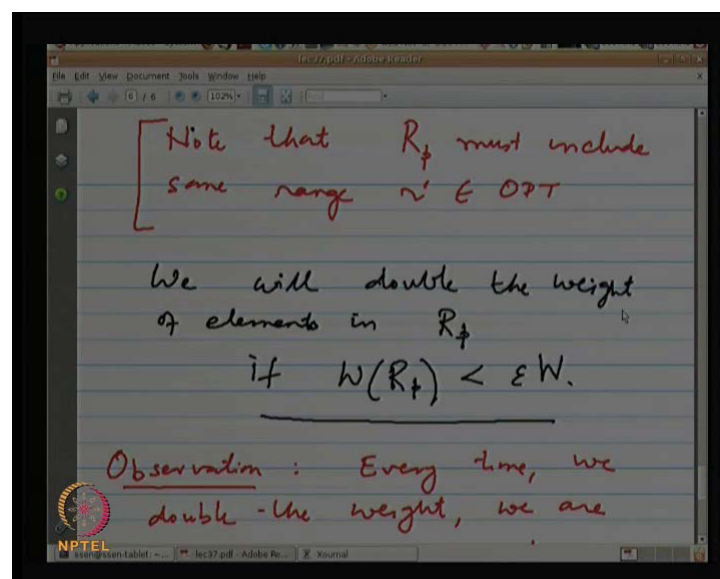 lec37.pdf - Adobe Reader
File Edit View Document Tools Window Help
6 / 6 102%
Note that R_p must include
some range r' ∈ OPT
We will double the weight
of elements in R_p
if W(R_p) < εW.
Observation : Every time, we
double the weight, we are
NPTEL
ssen@ssen-tablet: ~... lec37.pdf - Adobe Re... Xournal